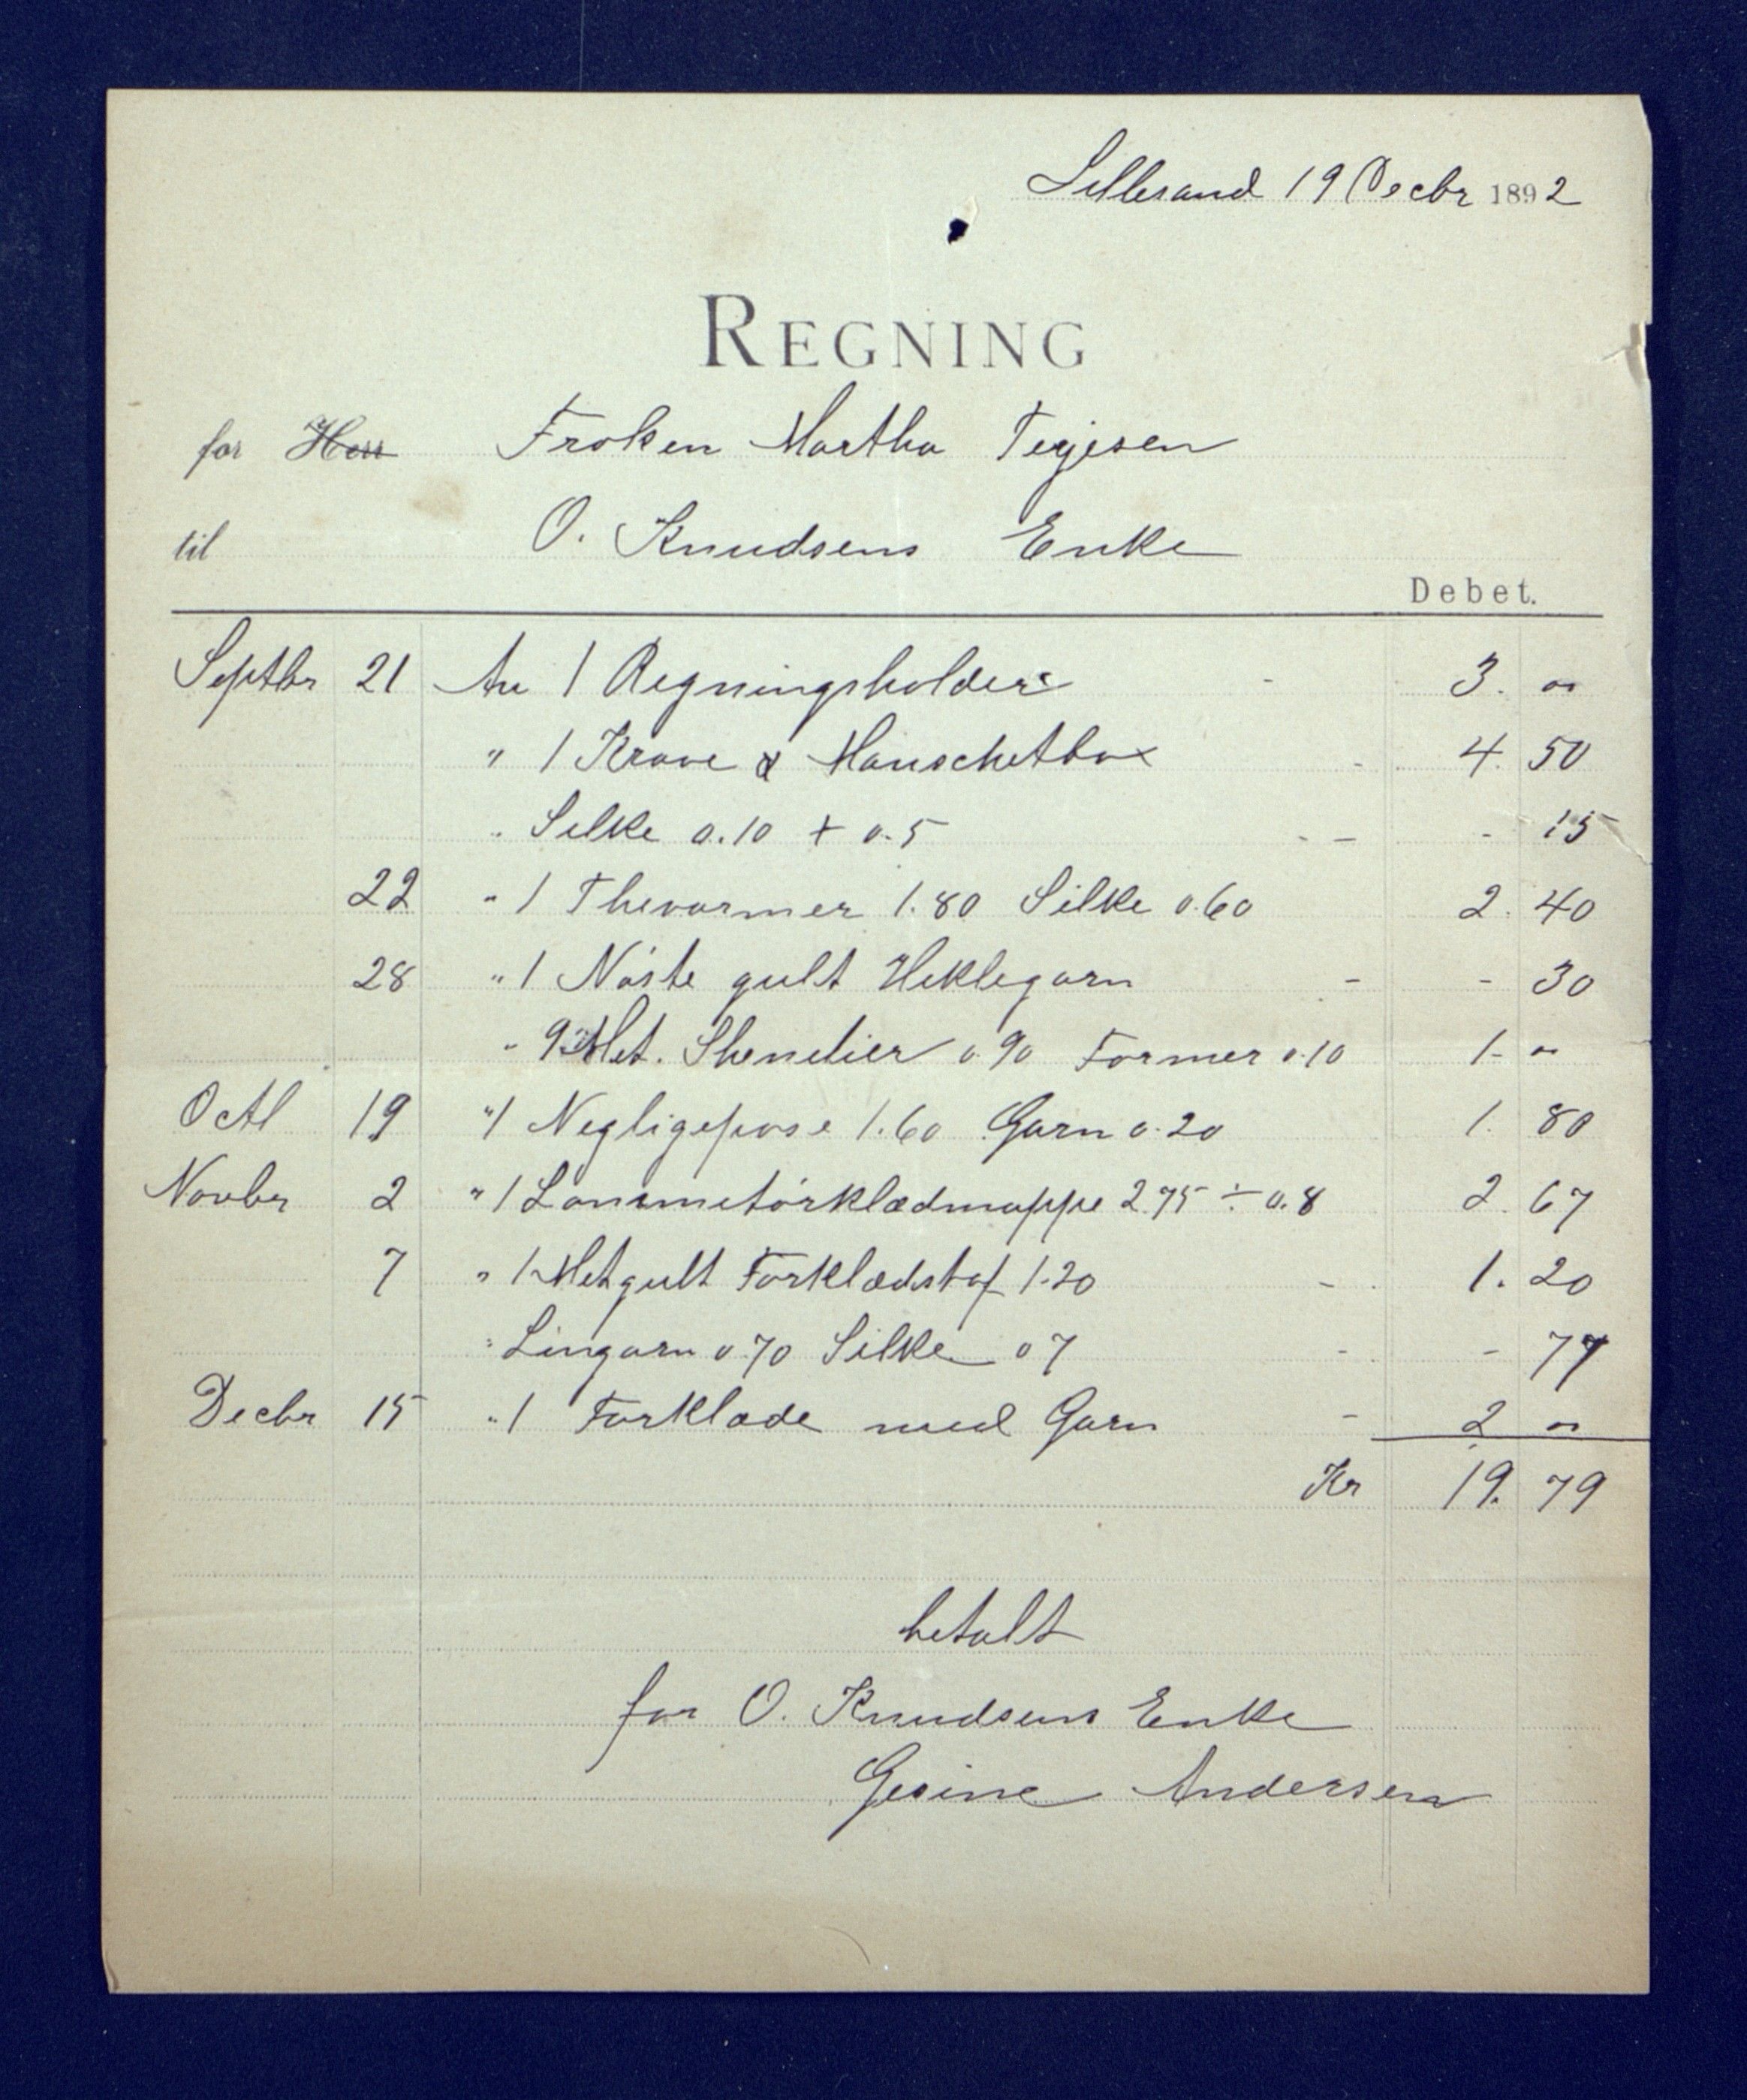 Lillesand 19 Decbr 1892
REGNING
for Herr Frøken Martha Terjesen
til O. Knudsens Enke
Debet.
Septbr 21 An 1 Regningsholder - 3. "
" 1 Krave & Manschetbox - 4. 50
" Silke 0.10 + 0.5 - - - 15
22 " 1 Thevarmer 1.80 Silke 0.60 2. 40
28 " 1 Nøste gult Heklegarn - - 30
" 9 Met. 0.90 Former 0.10 1 - "
Octl 19 " 1 Negligepose 1.60 Garn 0.20 1. 80
Novbr 2 " 1 Lommetörklædmappe 2.75 ÷ 0.8 2. 67
7 " 1 Met gult Forklædstof 1.20 - 1. 20
" Lingarn 0.70 Silke 0 7 - - 77
Decbr 15 " 1 Forklæde med Garn - 2 "
Kr 19. 79
betalt
for O. Knudsens Enke
Gesine Andersen